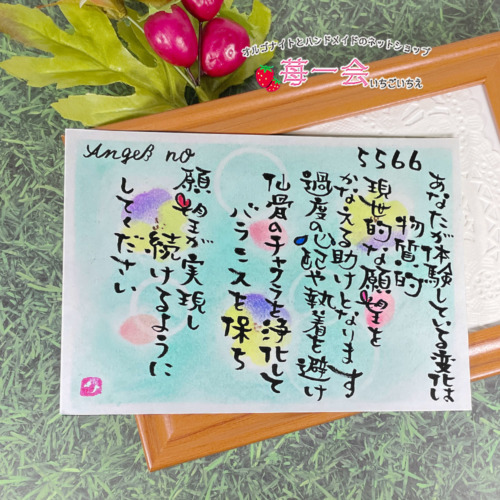 オルゴナイトとハンドメイドのネットショップ
苺一会
いちごいちえ
Angel no
5566
あなたが体験している変化は
物質的
現世的な願望を
かなえる助けとなります
過度の心配や執着を避け
仙骨のチャクラを浄化して
バランスを保ち
願望が実現し
続けるように
してください